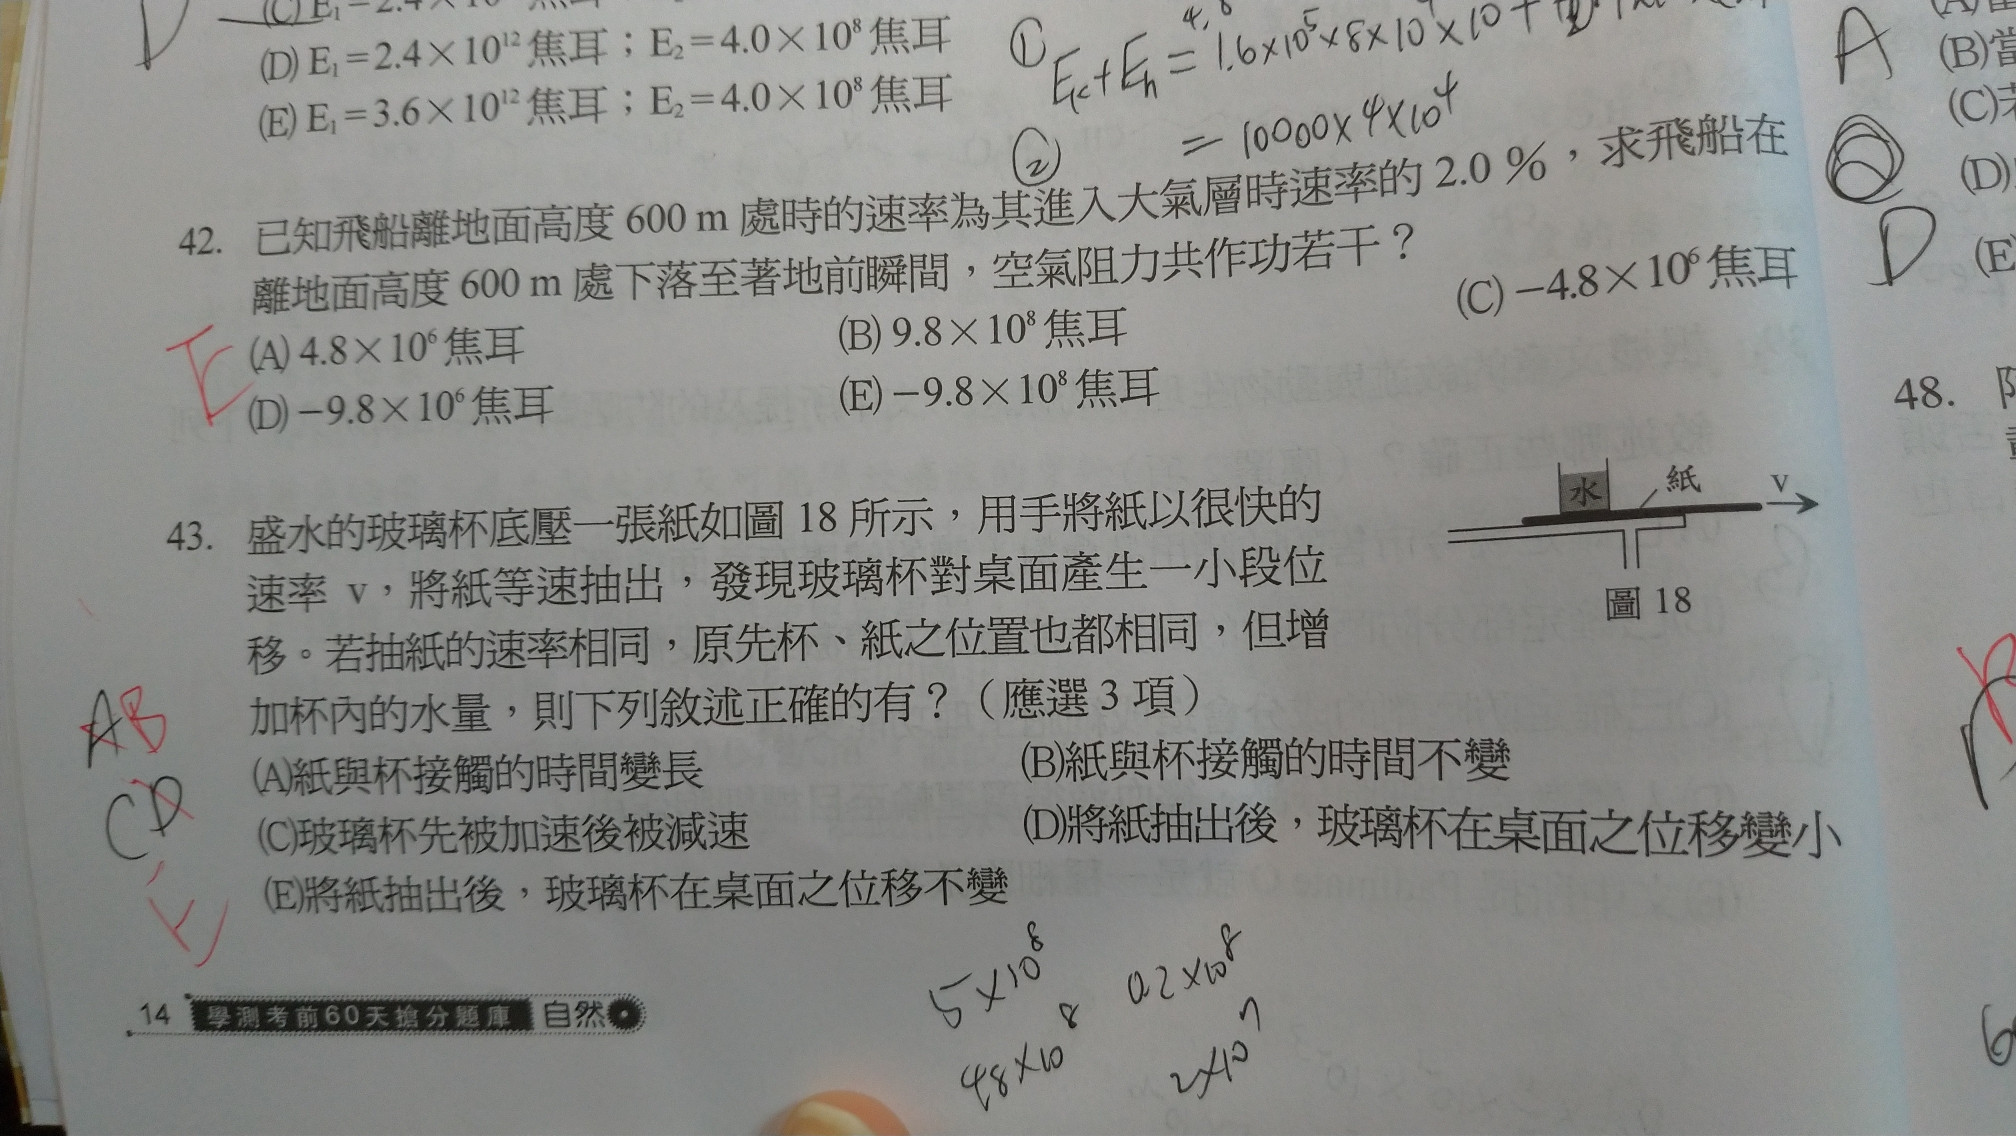 D
(C) E₁=2.4×10
(D) E₁=2.4×10¹²焦耳；E₂=4.0×10⁸焦耳
(E) E₁=3.6×10¹²焦耳；E₂=4.0×10⁸焦耳
①
4.8
Ek+Eh=1.6×10⁵×8×10⁴×10+
②
=10000×4×10⁴
42. 已知飛船離地面高度 600 m 處時的速率為其進入大氣層時速率的 2.0 %，求飛船在
離地面高度 600 m 處下落至著地前瞬間，空氣阻力共作功若干？
E
(A) 4.8×10⁶焦耳 (B) 9.8×10⁸焦耳 (C) −4.8×10⁶焦耳
(D) −9.8×10⁶焦耳 (E) −9.8×10⁸焦耳
43. 盛水的玻璃杯底壓一張紙如圖 18 所示，用手將紙以很快的
速率 v，將紙等速抽出，發現玻璃杯對桌面產生一小段位
移。若抽紙的速率相同，原先杯、紙之位置也都相同，但增
加杯內的水量，則下列敘述正確的有？（應選 3 項）
(A)紙與杯接觸的時間變長 (B)紙與杯接觸的時間不變
(C)玻璃杯先被加速後被減速 (D)將紙抽出後，玻璃杯在桌面之位移變小
(E)將紙抽出後，玻璃杯在桌面之位移不變
AB
CD
E
水
紙
v
圖 18
5×10⁸
0.2×10⁸
48×10⁸
2×10⁷
14 學測考前60天搶分題庫 自然
A
(A)
(B)當
(C)若
(D)
D
(E)
48.